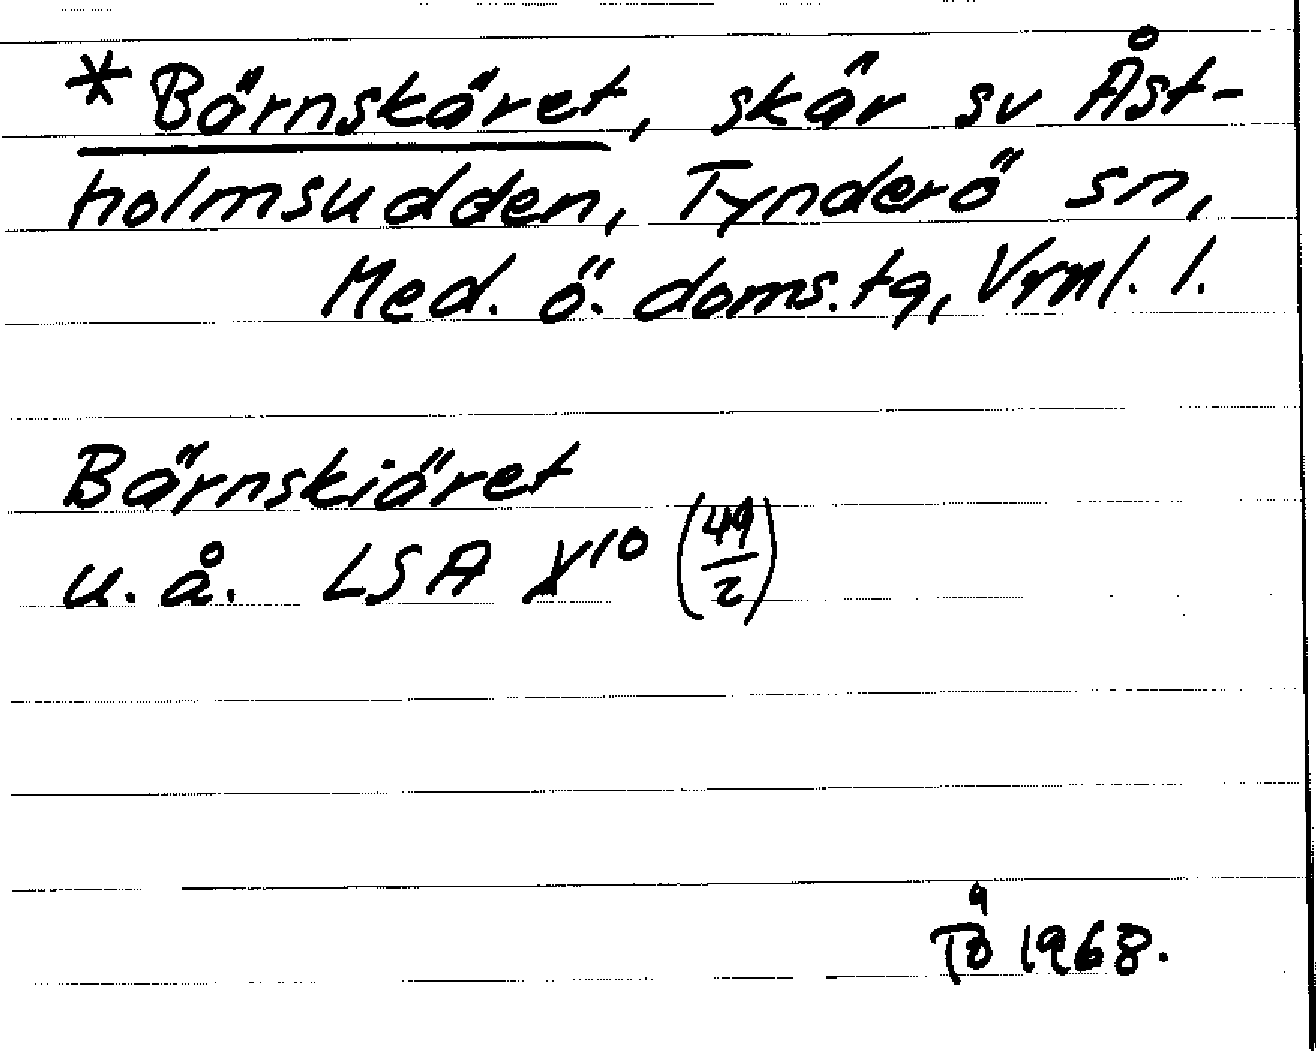 *Börnskäret, skär sv Åst-
holmsudden, Tynderö sn,
Med. ö. doms.tg, Vrnl. l.
Bärnskiäret
u. å. LSA X10 (49/2)
TÖ 1968.